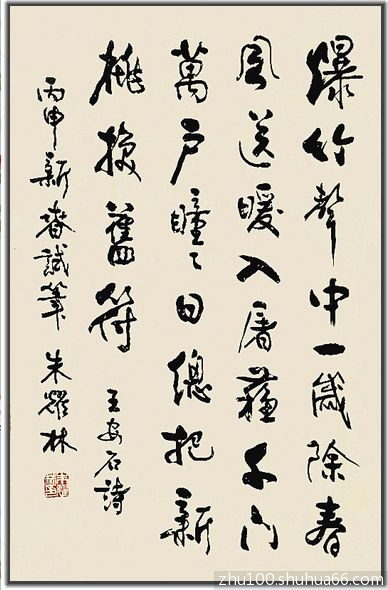 爆竹聲中一歲除春
風送暖入屠蘇千门
萬戶瞳〻日總把新
桃換舊符
王安石詩
丙申新春試筆 朱耀林
zhu100.shuhua66.com